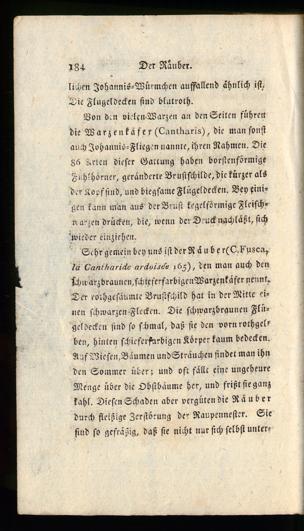 184 Der Räuber.
lichen Johannis-Würmchen auffallend ähnlich ist.
Die Flügeldecken sind blutroth.
Von den vielen Warzen an den Seiten führen
die Warzenkäfer (Cantharis), die man sonst
auch Johannis-Fliegen nannte, ihren Nahmen. Die
86 Arten dieser Gattung haben borstenförmige
Fühlhörner, geränderte Brustschilde, die kürzer als
der Kopf sind, und biegsame Flügeldecken. Bey eini-
gen kann man aus der Brust kegelförmige Fleisch-
warzen drücken, die, wenn der Druck nachläßt, sich
wieder einziehen.
Sehr gemein bey uns ist der Räuber (C. Fusca,
la Cantharide ardoisée 165), den man auch den
schwarzbraunen, schieferfarbigen Warzenkäfer nennt.
Der rothgesäumte Brustschild hat in der Mitte ei-
nen schwarzen Flecken. Die schwarzbraunen Flü-
geldecken sind so schmal, daß sie den vorn rothgel-
ben, hinten schieferfarbigen Körper kaum bedecken.
Auf Wiesen, Bäumen und Sträuchen findet man ihn
den Sommer über; und oft fällt eine ungeheure
Menge über die Obstbäume her, und frißt sie ganz
kahl. Diesen Schaden aber vergüten die Räuber
durch fleißige Zerstörung der Raupennester. Sie
sind so gefräßig, daß sie nicht nur sich selbst unter-